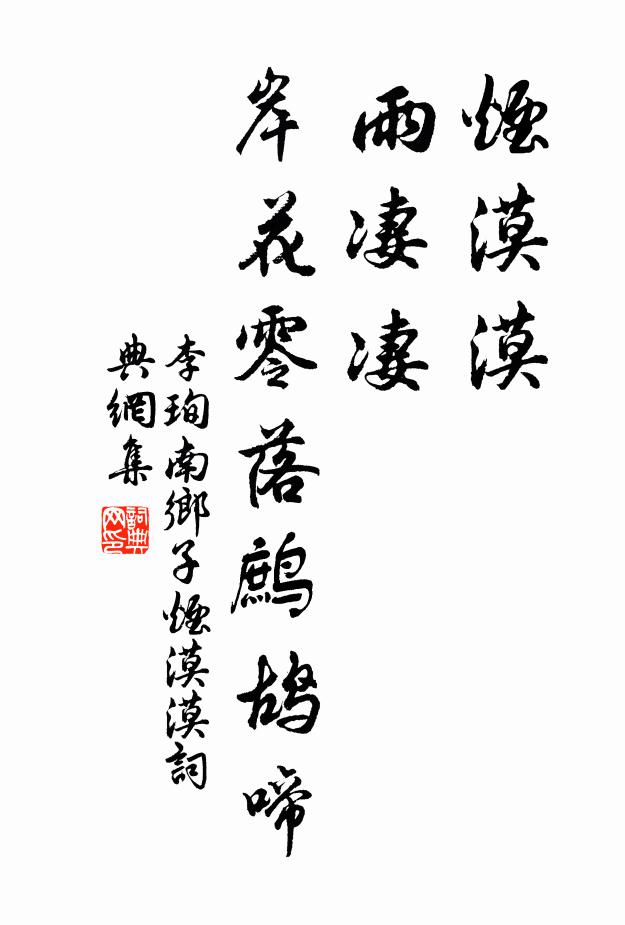 煙漠漠
雨淒淒
岸花零落鷓鴣啼
李珣南鄉子煙漠漠詞
典網集
詞典
网印